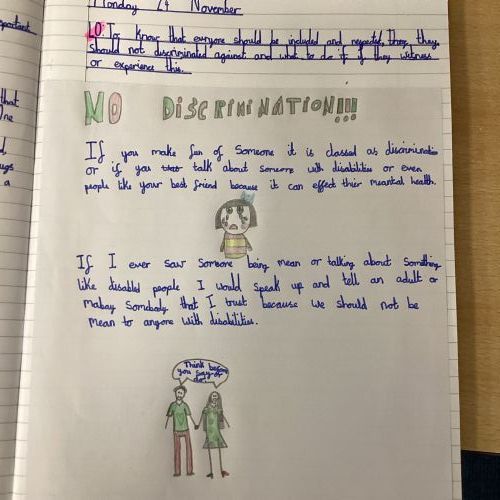 Monday 24 November
LO: To know that everyone should be included and respected, They they
should not discriminated against and what to do if if they witness
or experience this.
NO DISCRIMINATION!!!
If you make fun of Someone it is classed as discrimination
or if you talk about someone with disabilities or even
people like your best friend because it can effect thier meantal health.
If I ever saw Someone being mean or talking about Something
like disabled people I would speak up and tell an adult or
mabay Sombody that I trust because we should not be
mean to anyone with disabilities.
Think before
you say or
do!
that
One
a